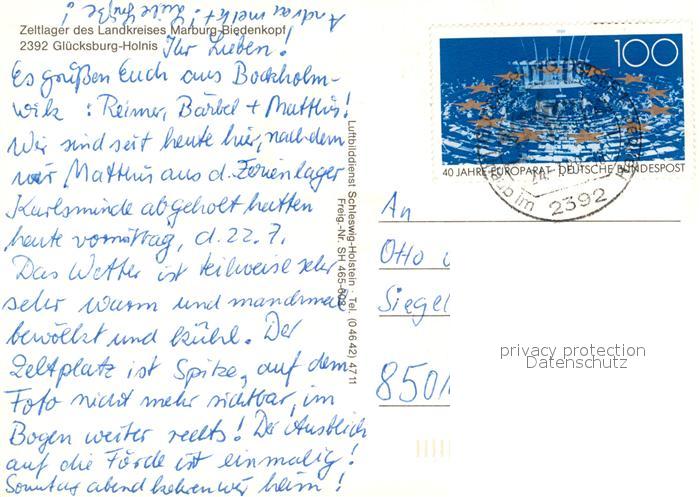 Zeltlager des Landkreises Marburg-Biedenkopf
2392 Glücksburg-Holnis
Ihr Lieben!
Es grüßen Euch aus Bockholm-
wik : Reimer, Bärbel + Matthis!
Wir sind seit heute hier, nachdem
wir Matthis aus d. Ferienlager
Karlsminde abgeholt hatten
heute vormittag, d. 22.7.
Das Wetter ist teilweise sehr
sehr warm und manchmal
bewölkt und kühl. Der
Zeltplatz ist Spitze, auf dem
Foto nicht mehr sichtbar, im
Bogen weiter rechts! Der Ausblick
auf die Förde ist einmalig!
Sonntag abend kehren wir heim!
Liebe Grüße!
Luftbilddienst Schleswig-Holstein · Tel. (04642) 4711
Freig.-Nr. SH 465-602
100
40 JAHRE EUROPARAT DEUTSCHE BUNDESPOST
2392
An
Otto
Siegel
8501
privacy protection
Datenschutz